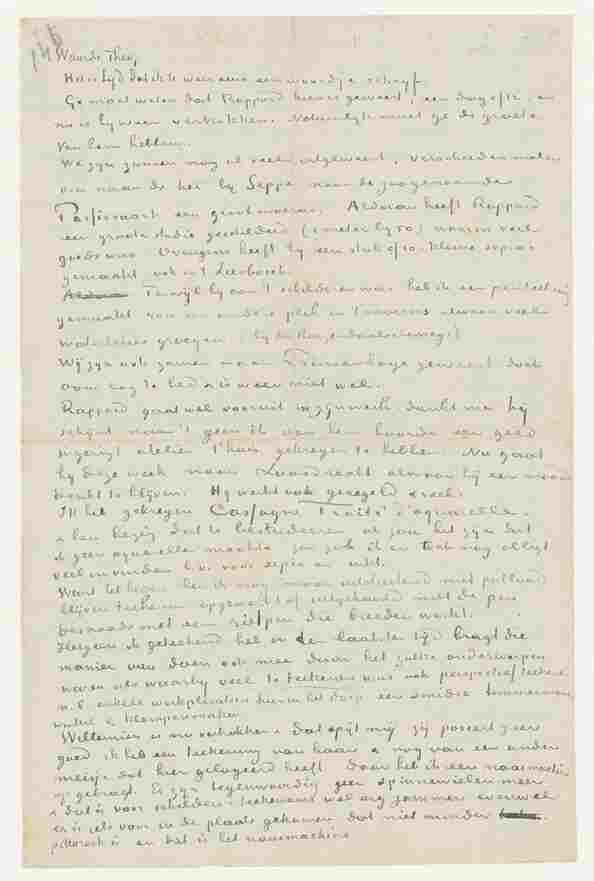 146
Waarde Theo,
Het is tijd dat ik U weer eens een woordje schryf.
Ge moet weten dat Rappard hier is geweest, een dag of 12, en
nu is hy weer vertrokken. Natuurlyk moet ge de groete
van hem hebben.
We zyn zamen nog al veel uitgeweest, verscheiden malen
o.a. naar de hei by Seppe naar de zoogenaamde
Passievaart een groot moeras. Aldaar heeft Rappard
een groote studie geschilderd (1 meter by 50) waarin veel
goeds was. Overigens heeft hy een stuk of 10 kleine sepias
gemaakt ook in 't Liesbosch.
Terwyl hy aan 't schilderen was heb ik een penteekening
gemaakt van een andere plek in 't moeras alwaar veel
waterlelies groeyen. (by den Roozendaalscheweg.)
Wy zyn ook zamen naar Princenhage geweest doch
oom zag te bed & is weer niet wel.
Rappard gaat wel vooruit in zyn werk dunkt me hy
schynt naar 't geen ik van hem hoorde een goed
ingerigt atelier t'huis gekregen te hebben. Nu gaat
hy deze week naar Loosdrecht alwaar hy een maand
denkt te blyven. Hy werkt ook geregeld & veel.
Ik heb gekregen Cassagne Traité d'aquarelle
& ben bezig dat te bestudeeren al zou het zyn dat
ik geen aquarelle maakte zou zal ik er toch nog altyd
veel in vinden b.v. voor sepia en inkt.
Want tot heden heb ik nog maar uitsluitend met potlood
blyven teekenen opgewerkt of uitgehaald met de pen
desnoods met een rietpen die breeder werkt.
Hetgeen ik geteekend heb in den laatste tyd bragt die
manier van doen ook mee daar het zulke onderwerpen
waren als waarby veel te teekenen was ook perspectief teekenen
n.l. enkele werkplaatsen hier in het dorp een smidse timmermans
winkel & klompenmakery
Willemien is nu vertrokken & dat spyt my zy poseert zeer
goed ik heb een teekening van haar & nog van een ander
meisje dat hier gelogeerd heeft. Daar heb ik een naaimachine
op gebragt. Er zyn tegenwoordig geen spinnewielen meer
& dat is voor schilders & teekenaars wel erg jammer evenwel
er is iets voor in de plaats gekomen dat niet minder
pittoresk is en dat is het naaimachine